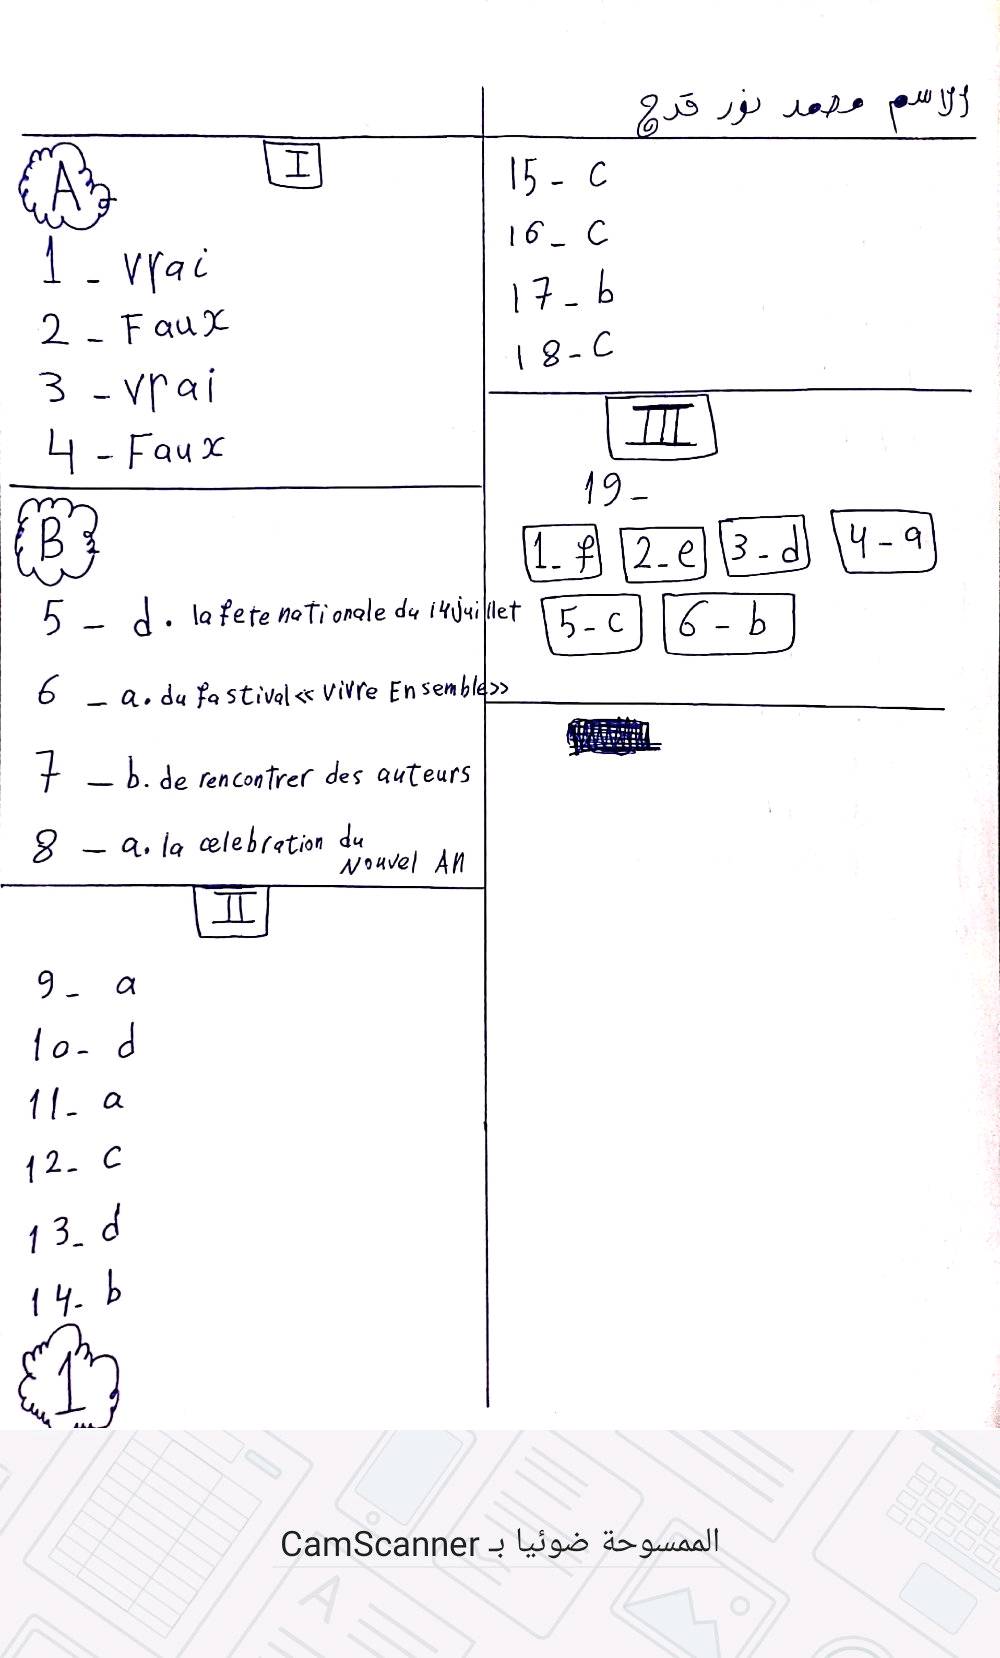 الاسم محمد نور قدح
I
A
1 - Vrai
2 - Faux
3 - vrai
4 - Faux
B
5 - d. la fete nationale du 14 juillet
6 - a. du fastival « vivre Ensemble »
7 - b. de rencontrer des auteurs
8 - a. la celebration du
Nouvel An
II
9 - a
10 - d
11 - a
12 - c
13 - d
14 - b
1
15 - c
16 - c
17 - b
18 - c
III
19 -
1 - f 2 - e 3 - d 4 - a
5 - c 6 - b
الممسوحة ضوئيا بـ CamScanner